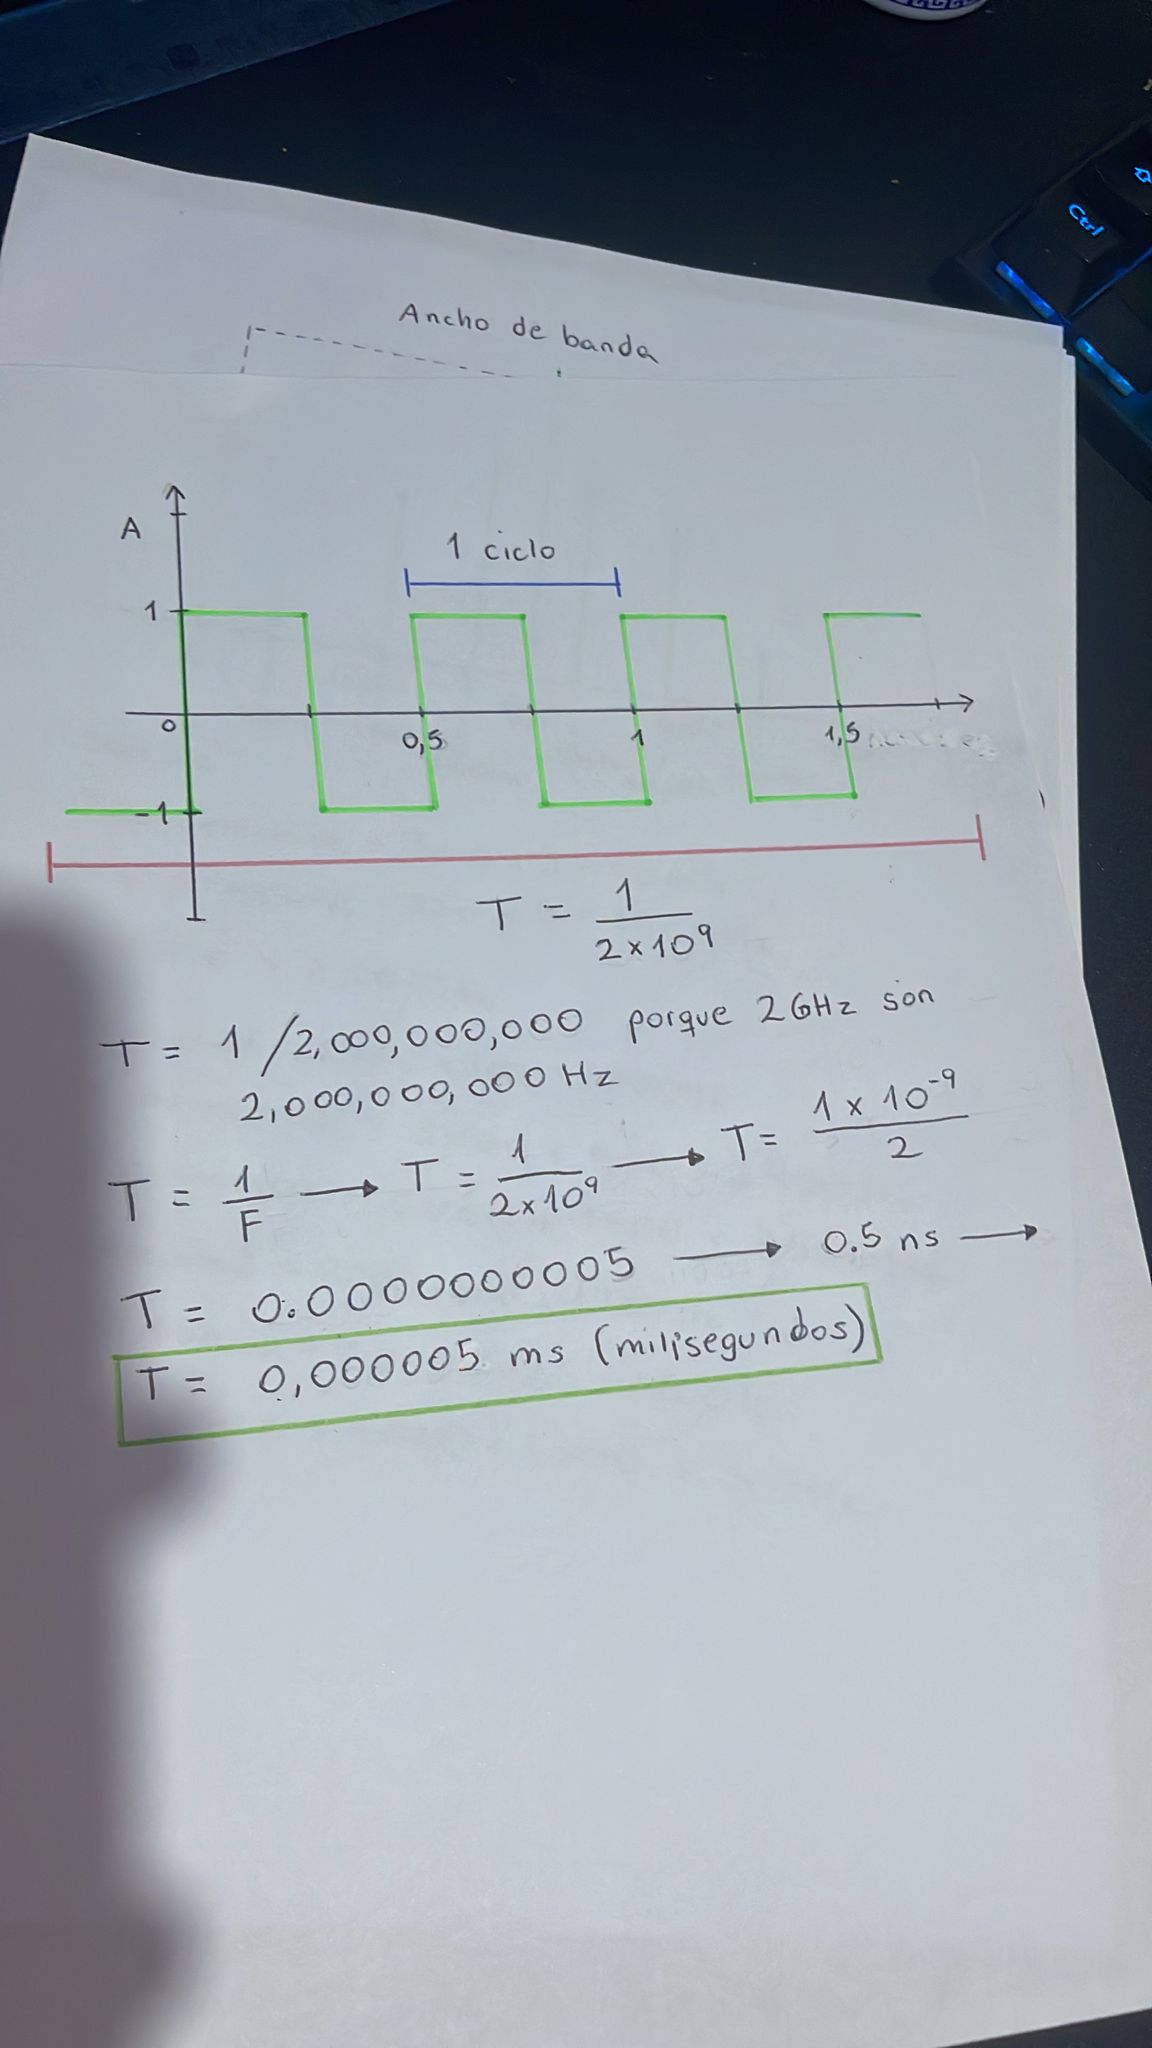 Ctrl
Ancho de banda
A
1 ciclo
1
0
0,5
1
1,5
-1
T = 1 / 2×10⁹
T = 1/2,000,000,000 porque 2GHz son
2,000,000,000 Hz
T = 1/F → T = 1/2×10⁹ → T = 1 × 10⁻⁹/2
T = 0.0000000005 → 0.5 ns →
T = 0,000005 ms (milisegundos)